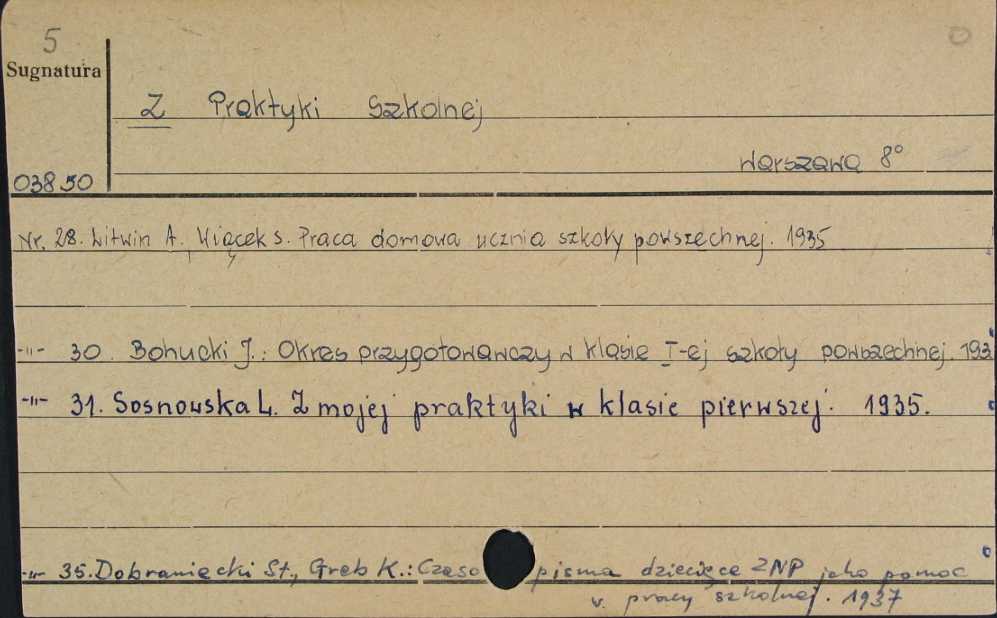 5
Sugnatura
Z Praktyki Szkolnej
Warszawa 8°
03850
Nr. 28. Litwin A. Więcek S. Praca domowa ucznia szkoły powszechnej. 1935
-"- 30. Bohucki J.: Okres przygotowawczy w klasie I-ej szkoły powszechnej. 193
-"- 31. Sosnowska L. Z mojej praktyki w klasie pierwszej. 1935.
-"- 35. Dobraniecki St., Greb K.: Czaso pisma dziecięce ZNP jako pomoc
w pracy szkolnej. 1937